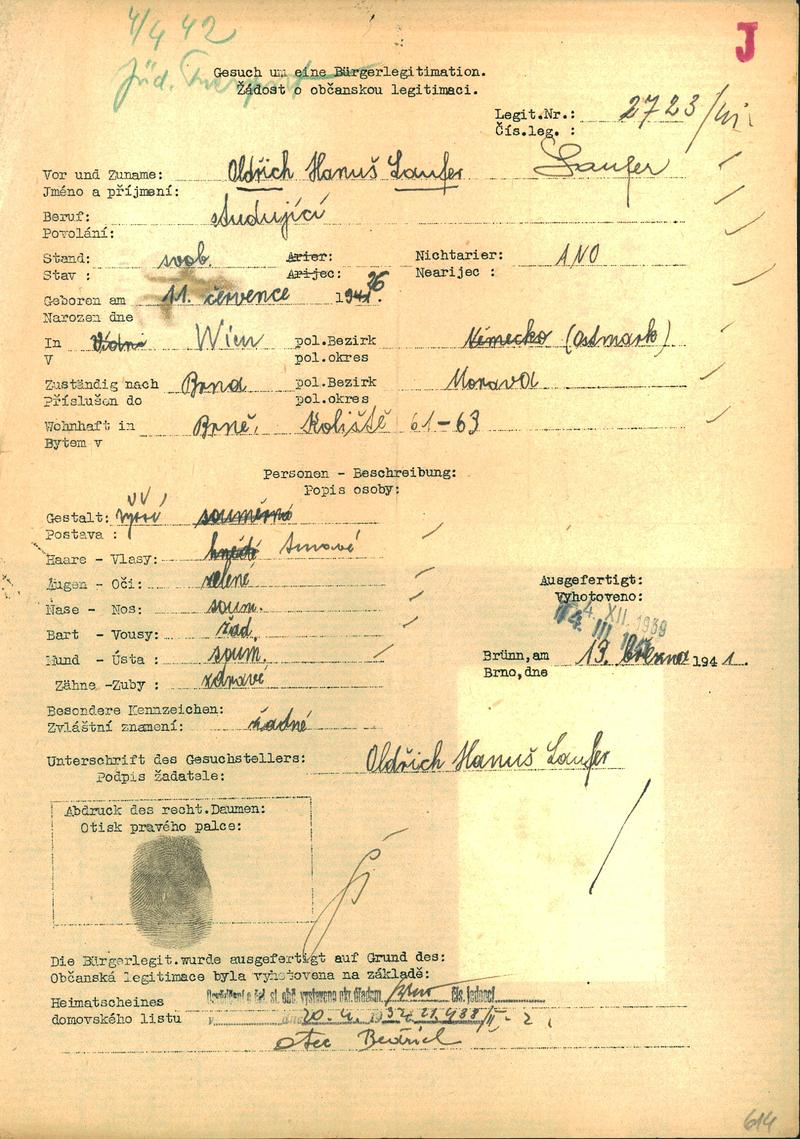 4/4 42
J
Jüd.
Gesuch um eine Bürgerlegitimation.
Žádost o občanskou legitimaci.
Legit.Nr.: 2723/VI
Čís.leg. :
Vor und Zuname: Oldřich Hanuš Laufer Laufer
Jméno a příjmení:
Beruf: studující
Povolání:
Stand: svob. Arier: Nichtarier: ANO
Stav : Arijec: Nearijec :
Geboren am 11. července 1926.
Narozen dne
In Vídni Wien pol.Bezirk Německo (Ostmark)
V pol.okres
Zuständig nach Brna pol.Bezirk Morava
Příslušen do pol.okres
Wohnhaft in Brně, Koliště 61-63
Bytem v
Personen - Beschreibung:
Popis osoby:
Gestalt: vyšší souměrná
Postava :
Haare - Vlasy: hnědé tmavé
Augen - Oči: zelené
Nase - Nos: soum.
Bart - Vousy: žád.
Mund - Ústa : soum.
Zähne -Zuby : zdravé
Ausgefertigt:
Vyhotoveno:
4. XII. 1939
Brünn,am 13. března 1941.
Brno,dne
Besondere Kennzeichen:
Zvláštní znamení: žádné
Unterschrift des Gesuchstellers: Oldřich Hanuš Laufer
Podpis žadatele:
Abdruck des recht.Daumen:
Otisk pravého palce:
Die Bürgerlegit.wurde ausgefertigt auf Grund des:
Občanská legitimace byla vyhotovena na základě:
Heimatscheines Osvědčení o čsl. st. obč. vystaveno okr. úřadem Brno čís. jednací
domovského listu 20. 4. 1937 21.938/II - 2
otec Bedřich
614